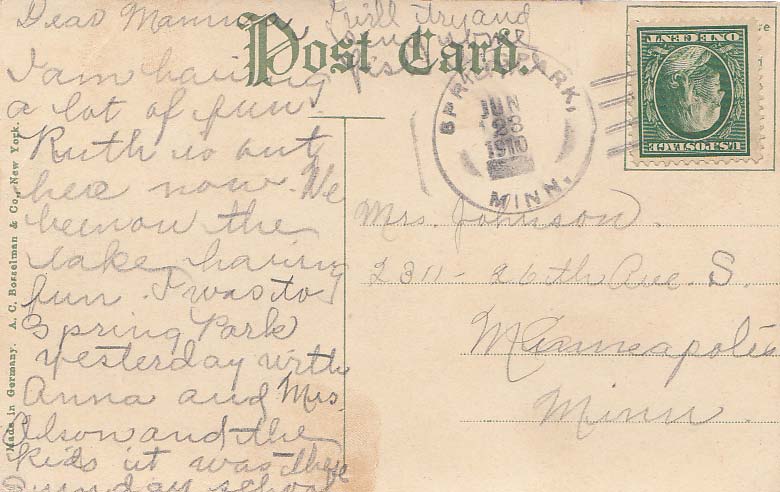 Dear Mamma,
I am having
a lot of fun.
Ruth is out
here now. We
been on the
lake having
fun. I was to
Spring Park
yesterday with
Anna and Mrs.
Olson and the
kids it was the
Sunday school
I will try and
Post Card.
SPRING PARK,
JUN
23
1910
MINN.
U.S. POSTAGE
ONE CENT
Mrs. Johnson.
2311 - 26th Ave. S.
Minneapolis
Minn.
Made in Germany. A. C. Bosselman & Co., New York.